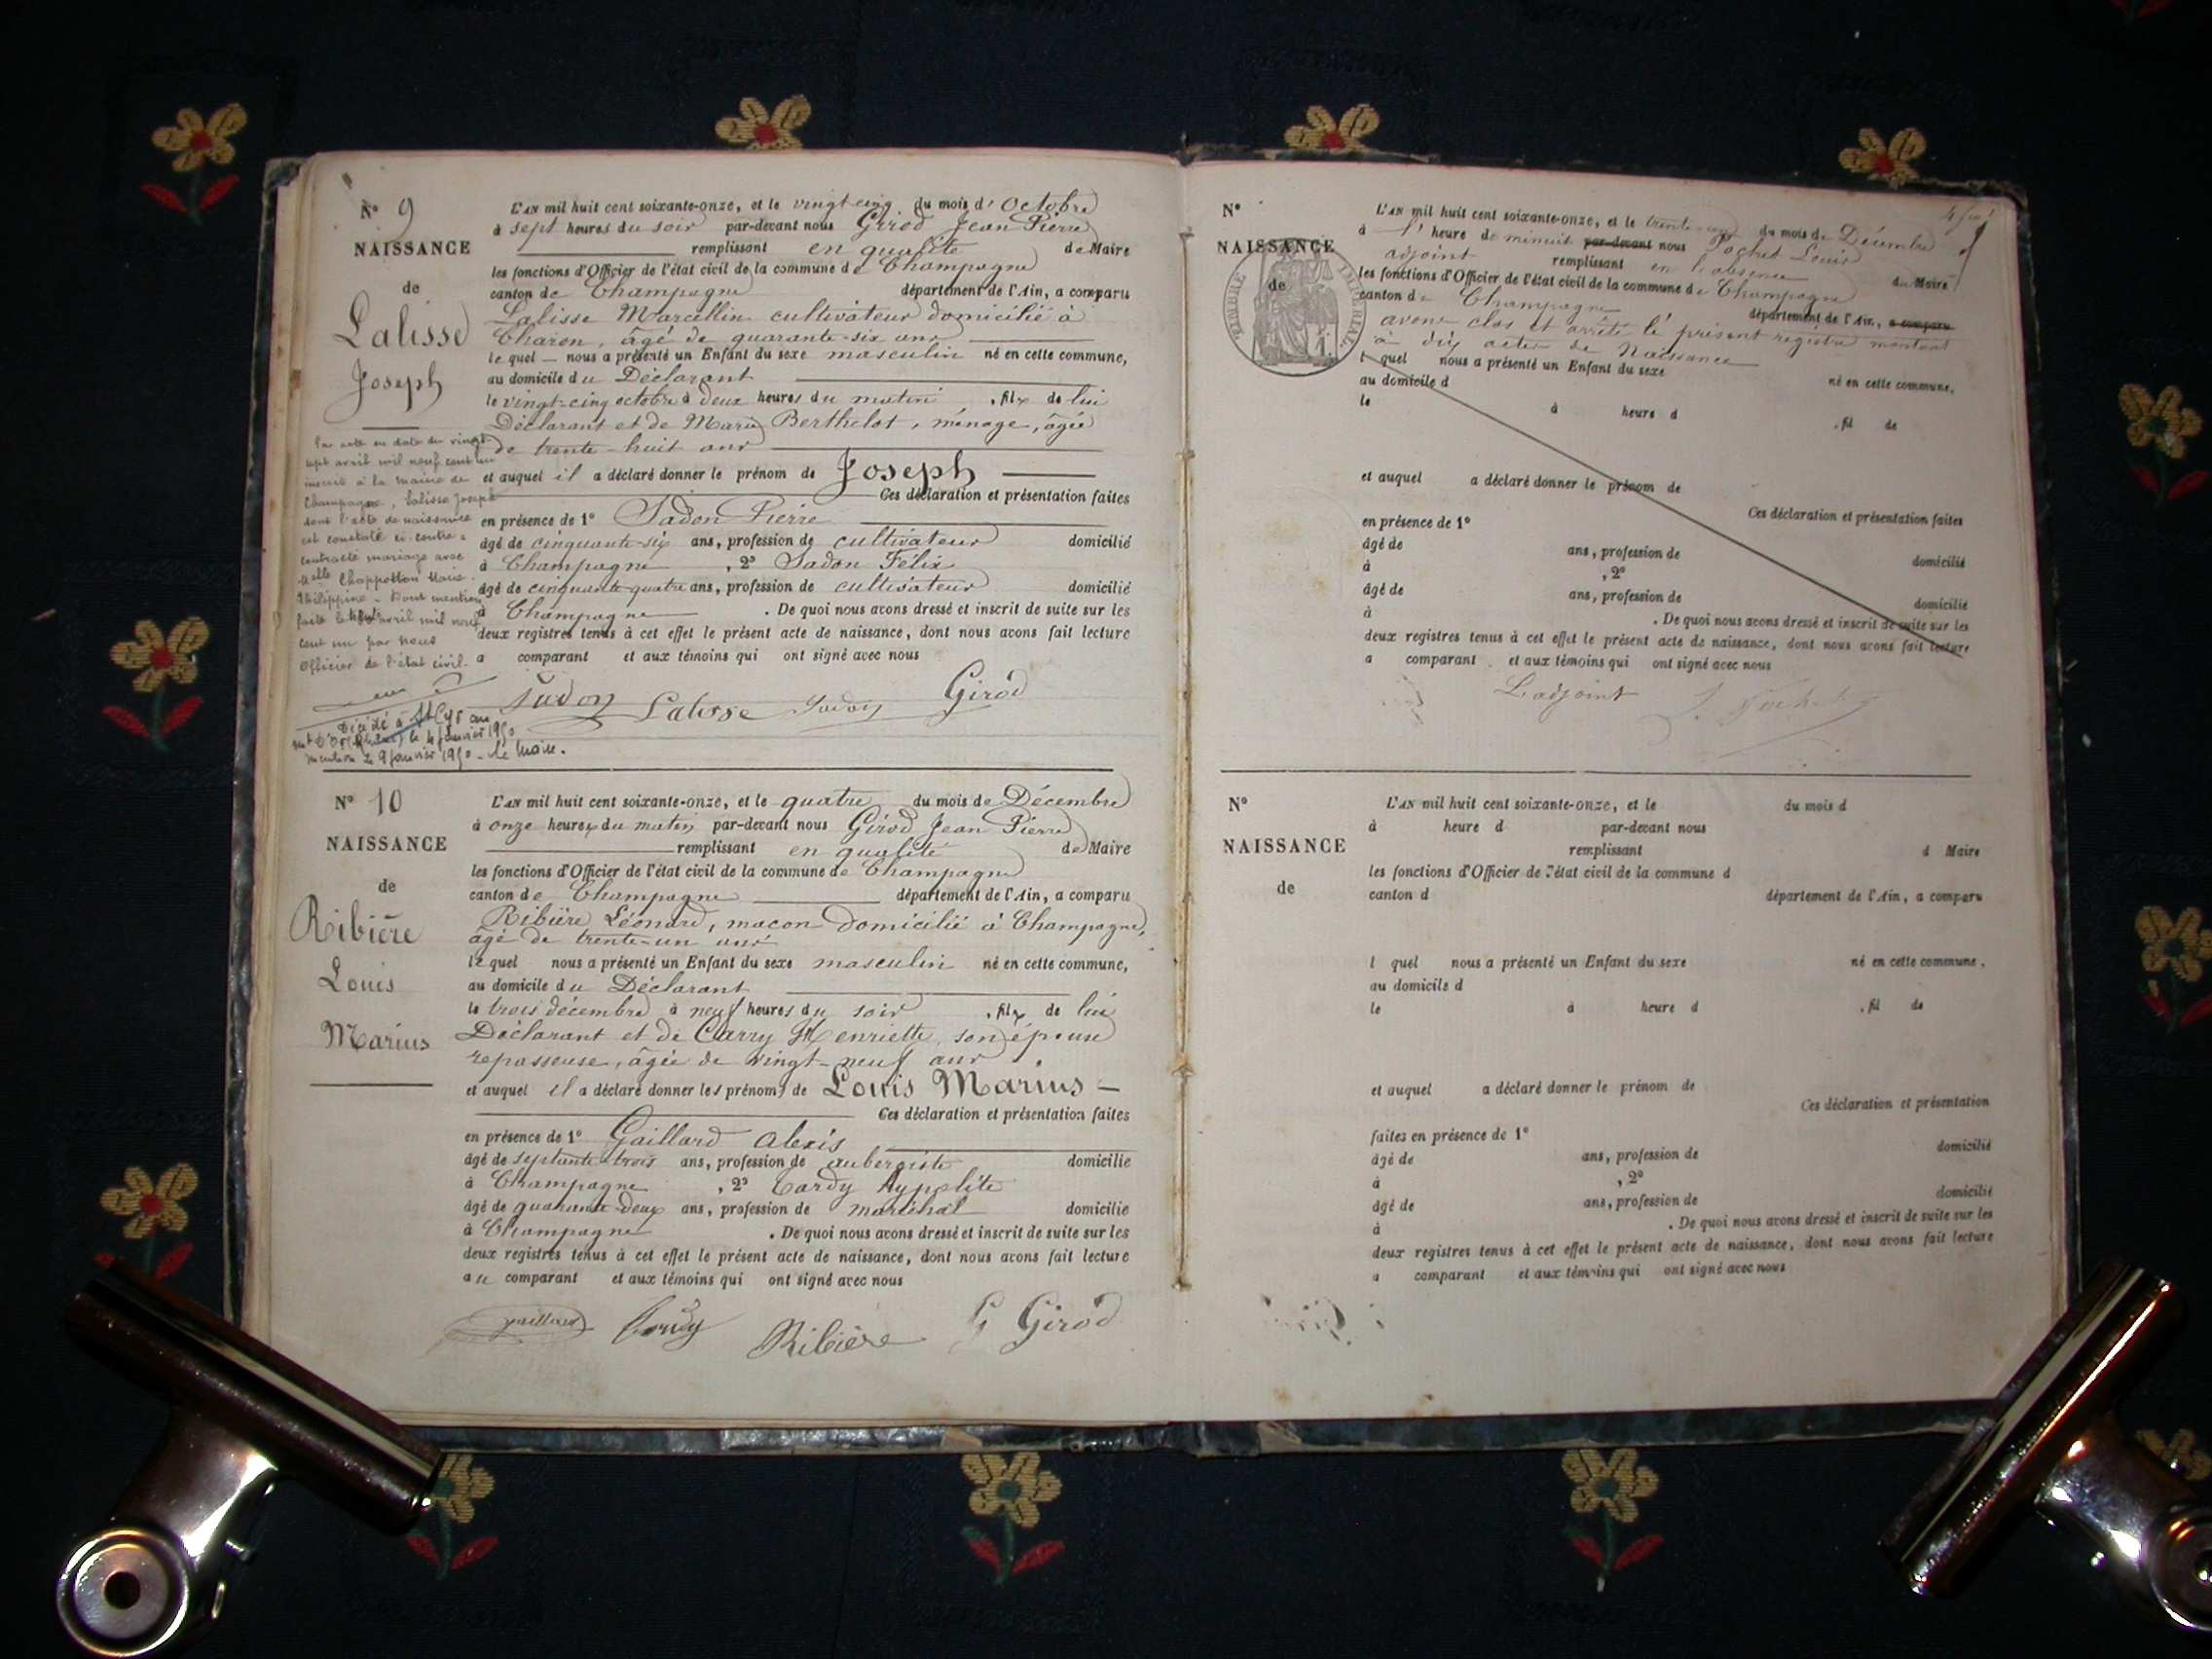 N° 9
NAISSANCE
de
Lalisse
Joseph
L'AN mil huit cent soixante-onze, et le vingt cinq du mois d'Octobre
à sept heures du soir par-devant nous Girod Jean Pierre
remplissant en qualité de Maire
les fonctions d'Officier de l'état civil de la commune de Champagne
canton de Champagne département de l'Ain, a comparu
Lalisse Marcellin cultivateur domicilié à
Charon, âgé de quarante-six ans
lequel nous a présenté un Enfant du sexe masculin né en cette commune,
au domicile du Déclarant
le vingt-cinq octobre à deux heures du matin, fils de lui
Déclarant et de Marie Berthelot, ménage, âgée
de trente-huit ans
et auquel il a déclaré donner le prénom de Joseph
Ces déclaration et présentation faites
en présence de 1° Sadon Pierre
âgé de cinquante-six ans, profession de cultivateur domicilié
à Champagne, 2° Sadon Félix
âgé de cinquante-quatre ans, profession de cultivateur domicilié
à Champagne. De quoi nous avons dressé et inscrit de suite sur les
deux registres tenus à cet effet le présent acte de naissance, dont nous avons fait lecture
a comparant et aux témoins qui ont signé avec nous
Sadon Lalisse Sadon Girod
Par acte en date du vingt
sept avril mil neuf cent un
inscrit à la mairie de
Champagne, Lalisse Joseph
dont l'acte de naissance
est constaté ci-contre a
contracté mariage avec
Melle Chapotton Marie
Philippine - Dont mention
faite le avril mil neuf
cent un par nous
Officier de l'état civil.
Décédé à St Cyr au
Mt D'Or (Rhône) le 4 janvier 1950
mention le 9 janvier 1950 - Le Maire.
N° 10
NAISSANCE
de
Ribière
Louis
Marius
L'AN mil huit cent soixante-onze, et le quatre du mois de Décembre
à onze heures du matin par-devant nous Girod Jean Pierre
remplissant en qualité de Maire
les fonctions d'Officier de l'état civil de la commune de Champagne
canton de Champagne département de l'Ain, a comparu
Ribière Léonard, maçon domicilié à Champagne,
âgé de trente-un ans
lequel nous a présenté un Enfant du sexe masculin né en cette commune,
au domicile du Déclarant
le trois décembre à neuf heures du soir, fils de lui
Déclarant et de Carry Henriette, son épouse
repasseuse, âgée de vingt-neuf ans.
et auquel il a déclaré donner les prénoms de Louis Marius
Ces déclaration et présentation faites
en présence de 1° Gaillard Alexis
âgé de septante-trois ans, profession de aubergiste domicilié
à Champagne, 2° Cardy Hypolite
âgé de quarante-deux ans, profession de maréchal domicilié
à Champagne. De quoi nous avons dressé et inscrit de suite sur les
deux registres tenus à cet effet le présent acte de naissance, dont nous avons fait lecture
au comparant et aux témoins qui ont signé avec nous
Gaillard Cardy Ribière G Girod
N°
NAISSANCE
de
TIMBRE IMPERIAL
L'AN mil huit cent soixante-onze, et le trente-un du mois de Décembre
à l'heure de minuit par-devant nous Pochet Louis
adjoint remplissant en l'absence du Maire
les fonctions d'Officier de l'état civil de la commune de Champagne
canton de Champagne département de l'Ain, a comparu
avons clos et arrêté le présent registre montant
à dix actes de Naissance
l quel nous a présenté un Enfant du sexe né en cette commune,
au domicile d
le à heure d, fil de
et auquel a déclaré donner le prénom de
Ces déclaration et présentation faites
en présence de 1°
âgé de ans, profession de domicilié
à, 2°
âgé de ans, profession de domicilié
à. De quoi nous avons dressé et inscrit de suite sur les
deux registres tenus à cet effet le présent acte de naissance, dont nous avons fait lecture
a comparant et aux témoins qui ont signé avec nous
L'adjoint
N°
NAISSANCE
de
L'AN mil huit cent soixante-onze, et le du mois d
à heure d par-devant nous
remplissant d Maire
les fonctions d'Officier de l'état civil de la commune d
canton d département de l'Ain, a comparu
l quel nous a présenté un Enfant du sexe né en cette commune,
au domicile d
le à heure d, fil de
et auquel a déclaré donner le prénom de
Ces déclaration et présentation
faites en présence de 1°
âgé de ans, profession de domicilié
à, 2°
âgé de ans, profession de domicilié
à. De quoi nous avons dressé et inscrit de suite sur les
deux registres tenus à cet effet le présent acte de naissance, dont nous avons fait lecture
a comparant et aux témoins qui ont signé avec nous